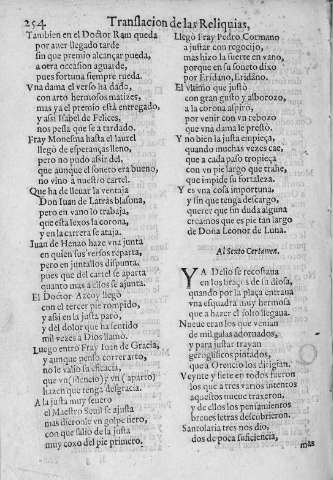 254 Translacion de las Reliquias,
Tambien en el Doctor Ram queda
por auer llegado tarde
sin que premio alcançar pueda,
a otra occasion aguarde,
pues fortuna siempre rueda.
Vna dama el verso ha dado,
con arto hermosos matizes,
mas ya el premio està entregado,
y assi Isabel de Felices,
nos pesa que se a tardado.
Fray Monessna hasta el laurel
llegò de esperanças lleno,
pero no pudo assir del,
que aunque el soneto era bueno,
no vino à nuestro cartel.
Que ha de lleuar la ventaja
Don Iuan de Latràs blasona,
pero en vano lo trabaja,
que esta lexos la corona,
y en la carrera se ataja.
Iuan de Henao haze vna junta
en quien sus versos reparta,
pero en juntallos dispunta,
pues que del cartel se aparta
quanto mas a ellos se ajunta.
El Doctor Azcoy llegò
con el tercer pie rompido,
y assi en la justa parò,
y del dolor que ha sentido
mil vezes a Dios llamò.
Luego entrò Fray Iuan de Gracia,
y aunque penso correr arto,
no le valio su eficacia,
que vn (silencio) y vn (aparto)
hazen que tenga desgracia.
A la justa muy seuero
el Maestro Seuil se ajusta
mas dieronle vn golpe fiero,
con que salio de la justa
muy coxo del pie primero.
Llegò Fray Pedro Cormano
a justar con regocijo,
mas hizo la suerte en vano,
porque en su soneto dixo
por Eridano, Eridàno.
El Vltimo que justò
con gran gusto y alborozo,
a la corona aspirò,
por venir con vn rebozo
que vna dama le prestò.
Y no bien la justa empieça,
quando muchas vezes cae,
que a cada paso tropieça
con vn pie largo que trahe,
que impide su fortaleza.
Y es vna cosa importuna,
y sin que tenga descargo,
querer que sin duda alguna
creamos que es pie tan largo
de Doña Leonor de Luna.
Al Sexto Certamen.
YA Delio se recostaua
en los braços de su diosa,
quando por la plaça entraua
vna esquadra muy hermosa
que a hazer el solto llegaua.
Nueue eran los que venian
de mil galas adornados,
y para justar trayan
geroglificos pintados,
que a Orencio los dirigian.
Veynte y siete en todos fueron
los que a tres varios intentos
aquestos nueue traxeron,
y de ellos los pensamientos
breues letras descubrieron.
Santolaria tres nos dio,
dos de poca suficiencia,
mas